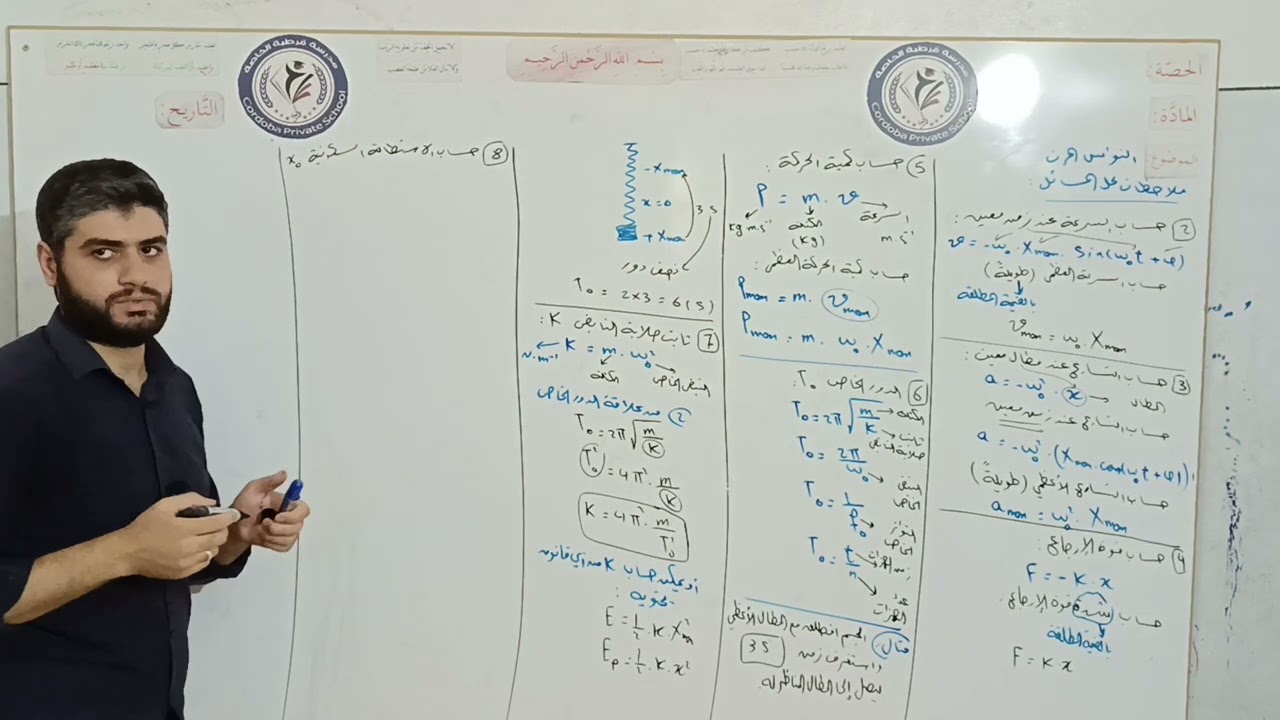 بِسْمِ اللهِ الرَّحْمٰنِ الرَّحِيْمِ
الحصّة:
المادّة:
الموضوع:
التّاريخ:
مدرسة قرطبة الخاصة
Cordoba Private School
مدرسة قرطبة الخاصة
Cordoba Private School
النواس المرن
ملاحظات حل المسائل:
2 حساب السرعة عند زمن معين:
v = -ω₀ . Xmax . sin(ω₀t + φ)
حساب السرعة العظمى (طويلة)
بالقيمة المطلقة
vmax = ω₀ . Xmax
3 حساب التسارع عند مطال معين:
a = -ω₀² . x → المطال
حساب التسارع عند زمن معين
a = -ω₀² . (Xmax . cos(ω₀t + φ))
حساب التسارع الأعظمي (طويلة)
amax = ω₀² . Xmax
4 حساب قوة الإرجاع:
F = -K . x
حساب شدة قوة الإرجاع:
بالقيمة المطلقة
F = K . x
5 حساب كمية الحركة:
P = m . v
السرعة
m.s⁻¹
الكتلة
(kg)
kg m.s⁻¹
حساب كمية الحركة العظمى:
Pmax = m . vmax
Pmax = m . ω₀ . Xmax
6 الدور الخاص T₀:
T₀ = 2π√(m/K)
الكتلة
ثابت
صلابة النابض
T₀ = 2π/ω₀
النبض
الخاص
T₀ = 1/f₀
التواتر
الخاص
T₀ = t/n
زمن الهزات
عدد
الهزات
مثال: الجسم انطلق من المطال الأعظمي
واستغرق زمن 3S
ليصل إلى المطال المناظر له.
-Xmax
x = 0
+Xmax
3S
نصف دور
T₀ = 2×3 = 6(s)
7 ثابت صلابة النابض K:
K = m . ω₀²
N.m⁻¹
الكتلة
النبض الخاص
2 من علاقة الدور الخاص
T₀ = 2π√(m/K)
T₀² = 4π² . m/K
K = 4π² . m/T₀²
أو يمكن حساب K من أي قانون
يحويه:
E = ½ . K . X²max
Ep = ½ . K . x²
8 حساب الاستطالة السكونية x₀